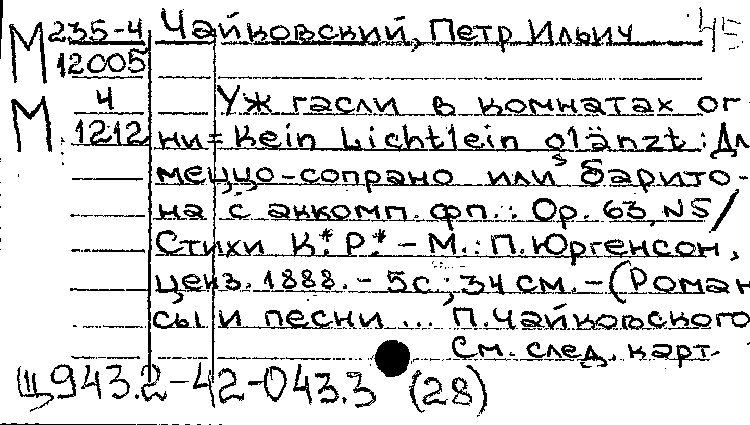 М 235-4 Чайковский, Петр Ильич 45
12005
М 4 Уж гасли в комнатах ог
1212 ни = Kein Lichtlein glänzt : Дл
меццо-сопрано или барито-
на с аккомп. фп. : Ор. 63, N5 /
Стихи К*. Р.* – М. : П. Юргенсон,
ценз. 1888. – 5 с. ; 34 см. – (Роман
сы и песни ... П. Чайковского
См. след. карт
Щ943.2-42-043.3 (28)